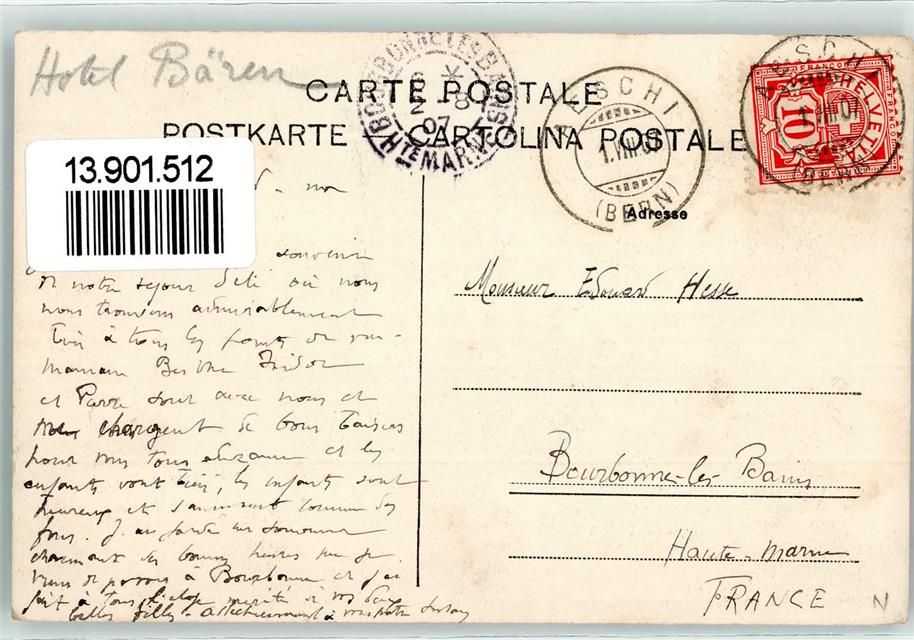 Hotel Bären
CARTE POSTALE
POSTKARTE – CARTOLINA POSTALE
BOURBONNE-LES-BAINS
2 - 8
07
HTE MARNE
AESCHI
1.VIII.07
(BERN)
AESCHI
1.VIII.07
FRANCO
HELVETIA
10
FRANCO
13.901.512
Adresse
souvenir
de notre séjour d'ici où nous
nous trouvons admirablement
bien à tous les points de vue
maman Berthe
et Pierre sont avec nous et
chargent de bons baisers
pour vous tous et les
enfants vont bien, les enfants sont
heureux et s'amusent comme des
fous. J'ai gardé un souvenir
charmant des bonnes heures que je
viens de passer à Bourbonne et j'ai
fait à tous mérité de vos deux
belles filles
Monsieur Edouard Hesse
Bourbonne-les-Bains
Haute-Marne
FRANCE
N